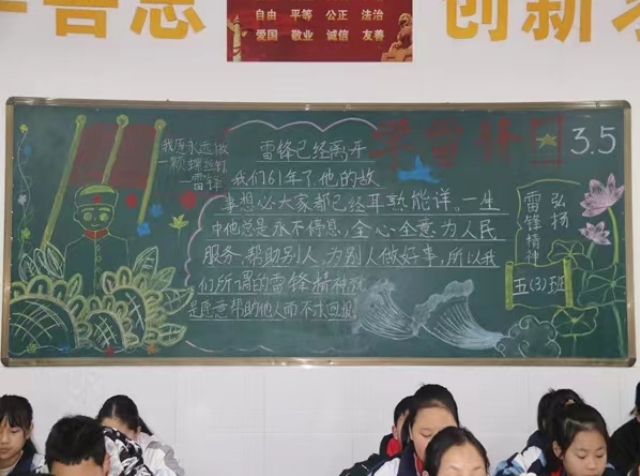 自由 平等 公正 法治
爱国 敬业 诚信 友善
创新
学雷锋
3.5
我愿永远做
一颗螺丝钉
—雷锋
雷锋已经离开
我们61年了,他的故
事想必大家都已经耳熟能详。一生
中他总是永不停息,全心全意为人民
服务,帮助别人,为别人做好事,所以我
们所谓的雷锋精神就
是愿意帮助他人而不求回报。
弘扬
雷锋精神
五(3)班